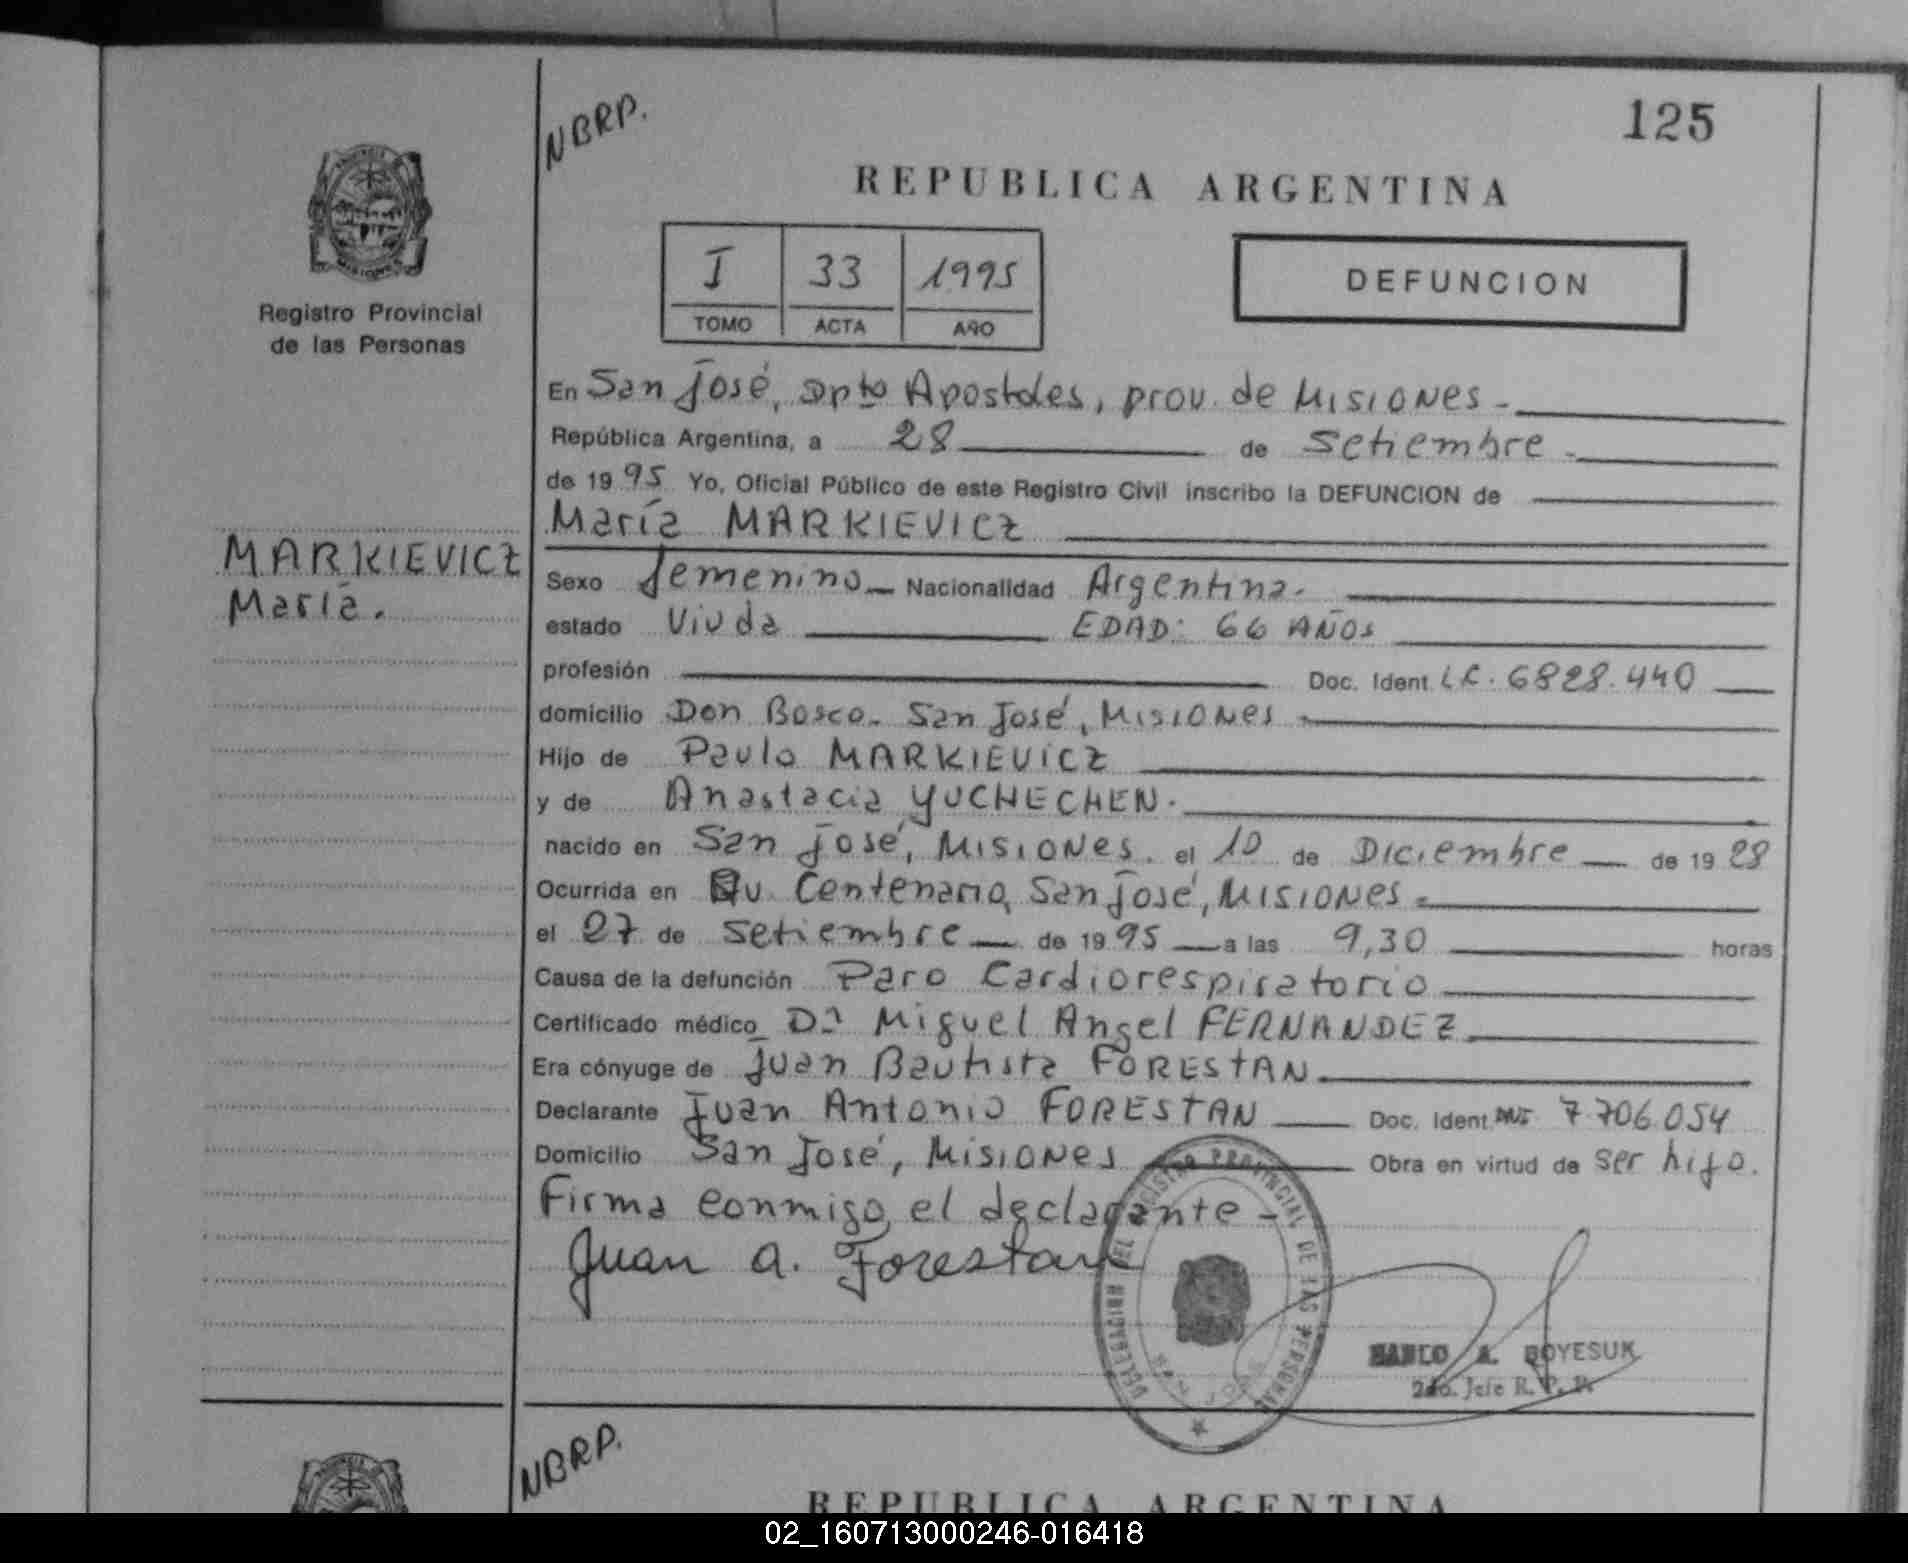 NBRP.
125
REPUBLICA ARGENTINA
I 33 1995
TOMO ACTA AÑO
DEFUNCION
Registro Provincial
de las Personas
En San José, Dpto Apostoles, prov. de Misiones -
República Argentina, a 28 de Setiembre -
de 1995 Yo, Oficial Público de este Registro Civil inscribo la DEFUNCION de
María MARKIEVICZ
MARKIEVICZ
María.
Sexo femenino - Nacionalidad Argentina.
estado Viuda EDAD: 66 AÑOS
profesión Doc. Ident. LC. 6828.440
domicilio Don Bosco - San José, Misiones -
Hijo de Paulo MARKIEVICZ
y de Anastacia YUCHECHEN.
nacido en San José, Misiones. el 10 de Diciembre de 1928
Ocurrida en Av. Centenario, San José, Misiones -
el 27 de Setiembre de 1995 a las 9,30 horas
Causa de la defunción Paro Cardiorespiratorio
Certificado médico Dr Miguel Angel FERNANDEZ
Era cónyuge de Juan Bautista FORESTAN
Declarante Juan Antonio FORESTAN Doc. Ident. DNI 7.706.054
Domicilio San José, Misiones Obra en virtud de ser hijo.
Firma conmigo el declarante -
Juan A. Forestan
DELEGACION DEL REGISTRO PROVINCIAL DE LAS PERSONAS
SAN JOSE
A. BOYESUK
2do. Jefe R. P. P.
NBRP.
REPUBLICA ARGENTINA
02_160713000246-016418